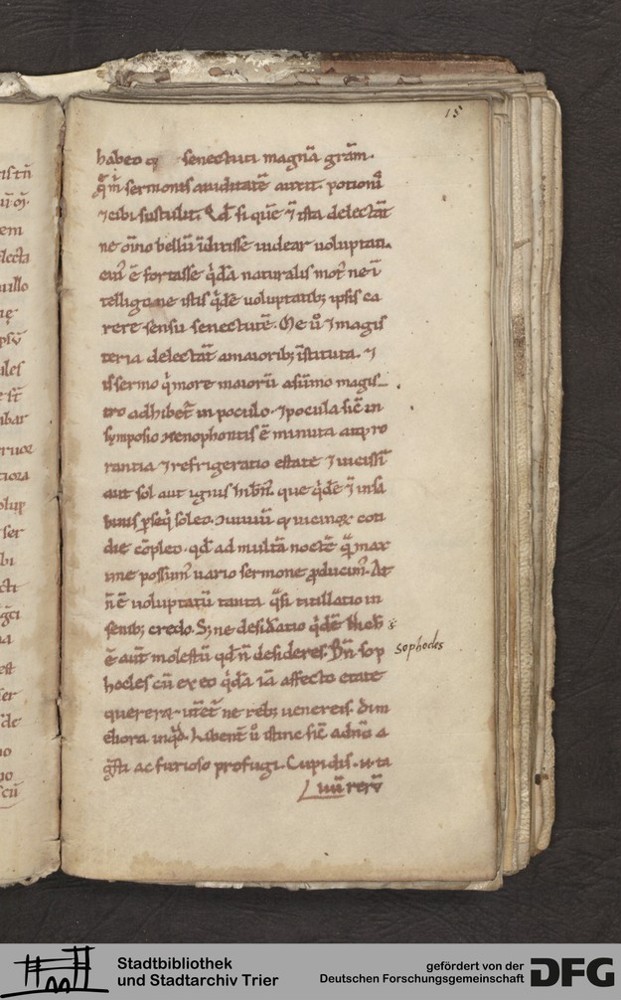 15
habeo senectuti magnā grām.
sermonis auiditatē auxit. potionis
⁊ cibi sustulit. Qd si quē ⁊ ista delectāt
ne oīno bellū īdixisse uidear uoluptati.
cui᷒ ē fortasse q̇dā naturalis mot᷒ ne ī
telligo ne istis q̇dē uoluptatib; ipsis ca
rere sensu senectutē. Me ů ⁊ magis
teria delectāt a maiorib; īstituta. ⁊
is sermo q̇ more maiorū a sūmo magis
tro adhibet᷒ in poculo. ⁊ pocula sic̄ in
symposio xenophontis ē minuta atq; ro
rantia ⁊ refrigeratio estate ⁊ uicissī
aut sol aut ignis hibn̄. que q̇dē ⁊ in sa
binis ꝑseq̇ soleo. ꝯuiuiū q; uicinoꝝ coti
die cōpleo. qd ad multā noctē q̄ max
ime possum᷒ uario sermone ꝓducim᷒. At
n̄ ē uoluptatū tanta q̄si titillatio in
senib; credo. S; ne desid̄atio q̇dē
ē aut̄ molestū qd n̄ desideres. Bn̄ sop
hocles cū ex eo q̇dā iā affecto etate
quereret᷒ utēt᷒ ne reb; uenereis. dii m
eliora inq̇d. libent᷒ ů istinc sic̄ a dn̄o a
g̊sti ac furioso profugi. Cupidis. u̇ ta
liuū rerū
sophocles
Stadtbibliothek
und Stadtarchiv Trier
gefördert von der
Deutschen Forschungsgemeinschaft
DFG